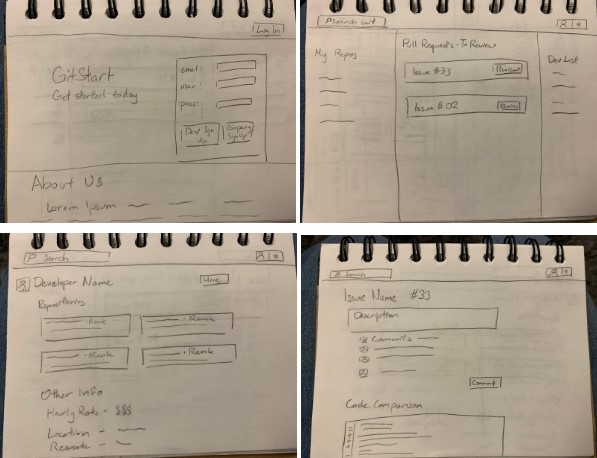 Log In
GitStart
Get started today
email:
user:
pass:
Dev Sign Up
Company Sign Up
About Us
Lorem Ipsum
Search Git
My Repos
Pull Requests - To Review
Dev List
Issue #33
Issue #02
Search
Developer Name
Hire
Repositories
Rank
Rank
Rank
Rank
Other Info
Hourly Rate - $$$
Location -
Remote -
Search
Issue Name #33
Description
Commits
Commit
Code Comparison